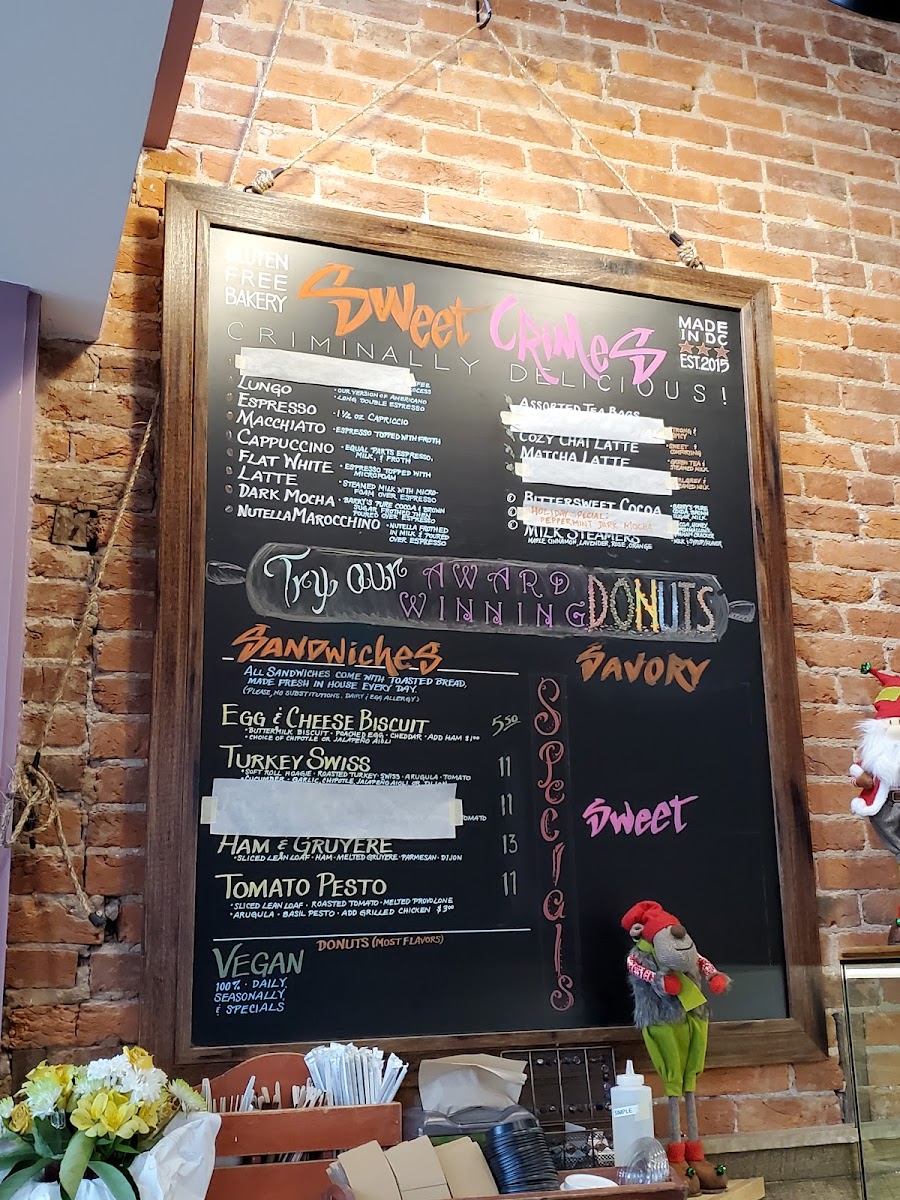 GLUTEN
FREE
BAKERY
Sweet Crimes
MADE
IN DC
EST. 2015
CRIMINALLY DELICIOUS!
LUNGO
· OUR VERSION OF AMERICANO
· LONG DOUBLE ESPRESSO
ESPRESSO · 1½ OZ CAPRICCIO
MACCHIATO · ESPRESSO TOPPED WITH FROTH
CAPPUCCINO · EQUAL PARTS ESPRESSO,
MILK, & FROTH
FLAT WHITE · ESPRESSO TOPPED WITH
MICROFOAM
LATTE · STEAMED MILK WITH MICRO-
FOAM OVER ESPRESSO
DARK MOCHA · BARRY'S PURE COCOA & BROWN
SUGAR FROTHED THEN
POURED OVER ESPRESSO
NUTELLA MAROCCHINO · NUTELLA FROTHED
IN MILK & POURED
OVER ESPRESSO
ASSORTED TEA BAGS
STRONG &
SPICY
COZY CHAI LATTE · SWEET &
COMFORTING
MATCHA LATTE · GREEN TEA &
STEAMED MILK
EARL GREY &
STEAMED MILK
BITTERSWEET COCOA · BARRY'S PURE
COCOA BROWN
SUGAR MILK
HOLIDAY SPECIAL:
PEPPERMINT DARK MOCHA
MILK STEAMERS · MILK & SYRUP FLAVOR
MAPLE CINNAMON, LAVENDER, ROSE, ORANGE
Try our AWARD
WINNING DONUTS
SANDWICHES
ALL SANDWICHES COME WITH TOASTED BREAD,
MADE FRESH IN HOUSE EVERY DAY.
(PLEASE, NO SUBSTITUTIONS. DAIRY & EGG ALLERGY)
EGG & CHEESE BISCUIT 5.50
· BUTTERMILK BISCUIT · POACHED EGG · CHEDDAR · ADD HAM $1.00
· CHOICE OF CHIPOTLE OR JALAPEÑO AIOLI
TURKEY SWISS 11
· SOFT ROLL HOAGIE · ROASTED TURKEY · SWISS · ARUGULA · TOMATO
CUCUMBER · GARLIC, CHIPOTLE, JALAPEÑO AIOLI OR DIJON
11
TOMATO
HAM & GRUYERE 13
· SLICED LEAN LOAF · HAM · MELTED GRUYERE · PARMESAN · DIJON
TOMATO PESTO 11
· SLICED LEAN LOAF · ROASTED TOMATO · MELTED PROVOLONE
· ARUGULA · BASIL PESTO · ADD GRILLED CHICKEN $3.00
VEGAN
DONUTS (MOST FLAVORS)
100% · DAILY,
SEASONALLY,
& SPECIALS
SPECIALS
SAVORY
Sweet
SIMPLE